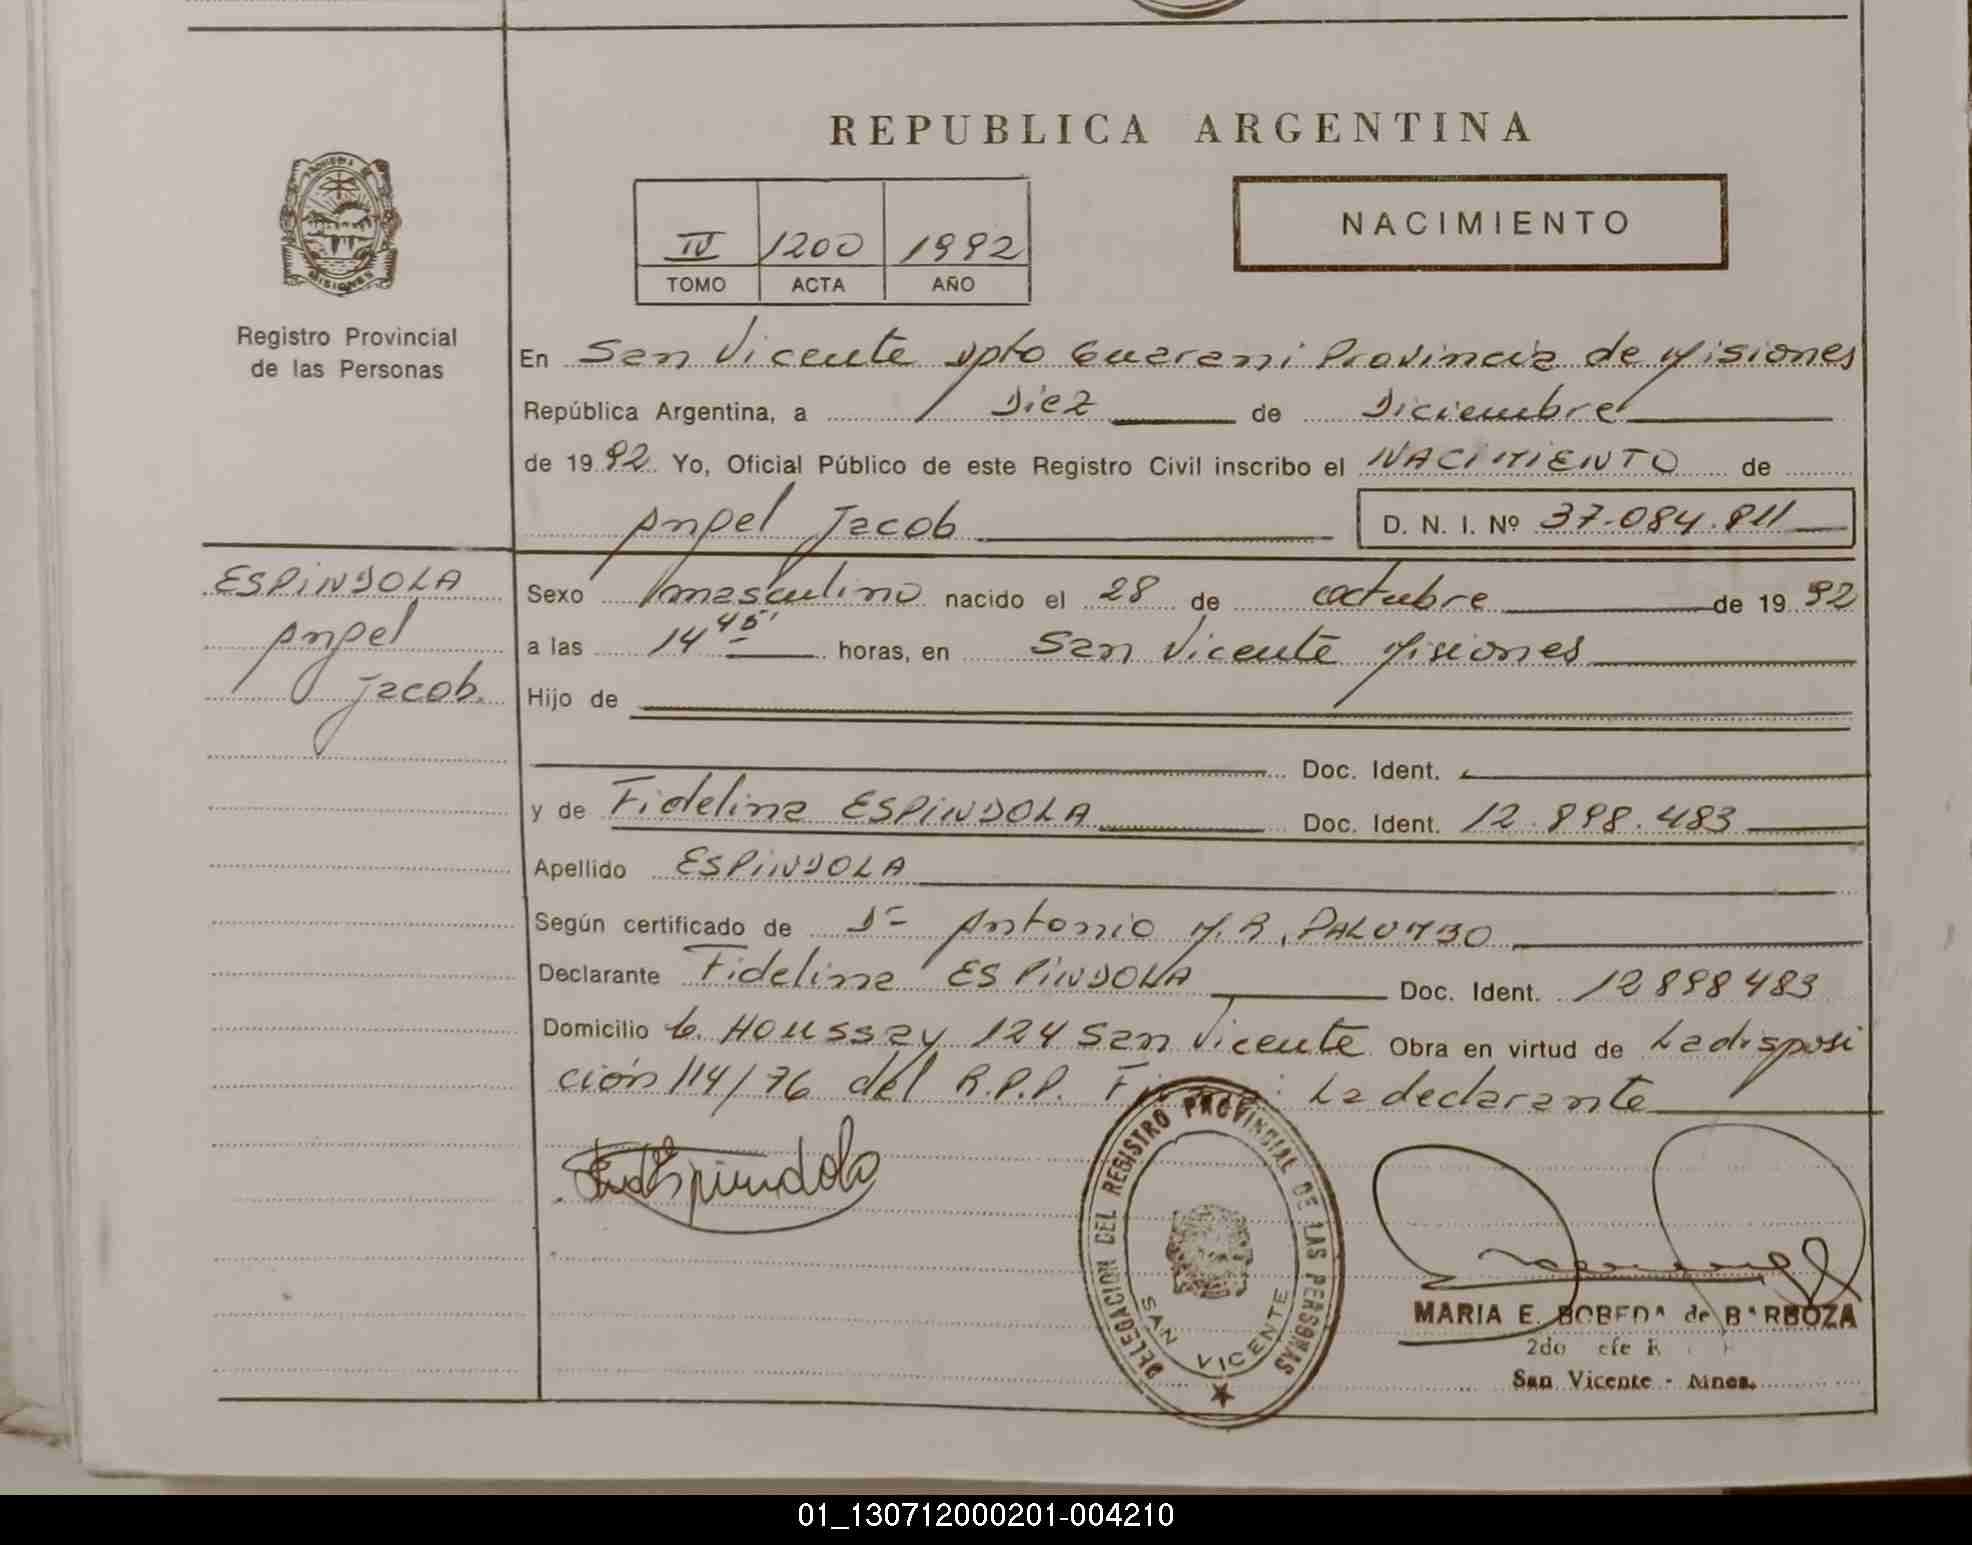 REPUBLICA ARGENTINA
PROVINCIA DE MISIONES
Registro Provincial
de las Personas
IV 1200 1992
TOMO ACTA AÑO
NACIMIENTO
En San Vicente Dpto Guarani Provincia de Misiones
República Argentina, a Diez de Diciembre
de 1992 Yo, Oficial Público de este Registro Civil inscribo el NACIMIENTO de
Angel Jacob D. N. I. Nº 37.084.811
ESPINDOLA
Angel
Jacob.
Sexo masculino nacido el 28 de octubre de 1992
a las 14 45' horas, en San Vicente Misiones
Hijo de
Doc. Ident.
y de Fidelina ESPINDOLA Doc. Ident. 12.898.483
Apellido ESPINDOLA
Según certificado de Dr Antonio M.R. PALUMBO
Declarante Fidelina ESPINDOLA Doc. Ident. 12898483
Domicilio B. Houssay 124 San Vicente Obra en virtud de La disposi
ción 114/76 del R.P.P. La declarante
Espindola
DELEGACION DEL REGISTRO PROVINCIAL DE LAS PERSONAS
SAN VICENTE
MARIA E. BOBEDA de BARBOZA
2do
San Vicente - Mnes.
01_130712000201-004210